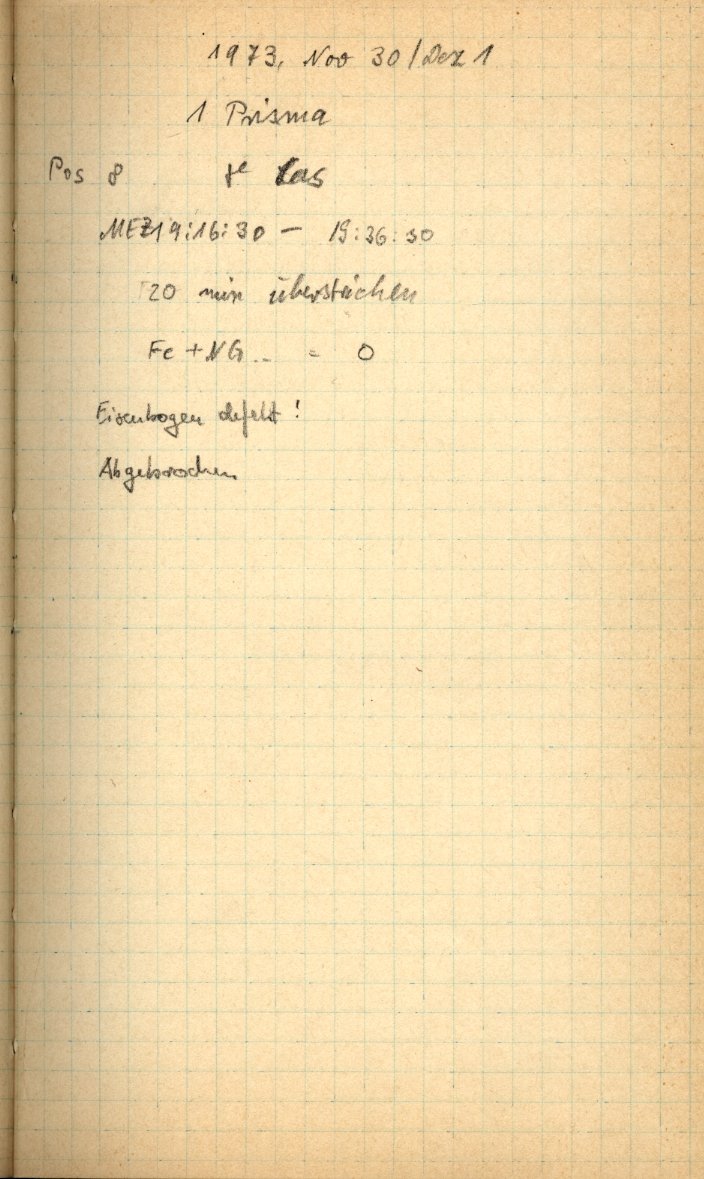 1973, Nov 30/Dez 1
1 Prisma
Pos 8 Cas
MEZ 19:16:30 — 19:36:30
20 min überstrichen
Fe + NG .. = 0
Eisenbogen defekt!
Abgebrochen